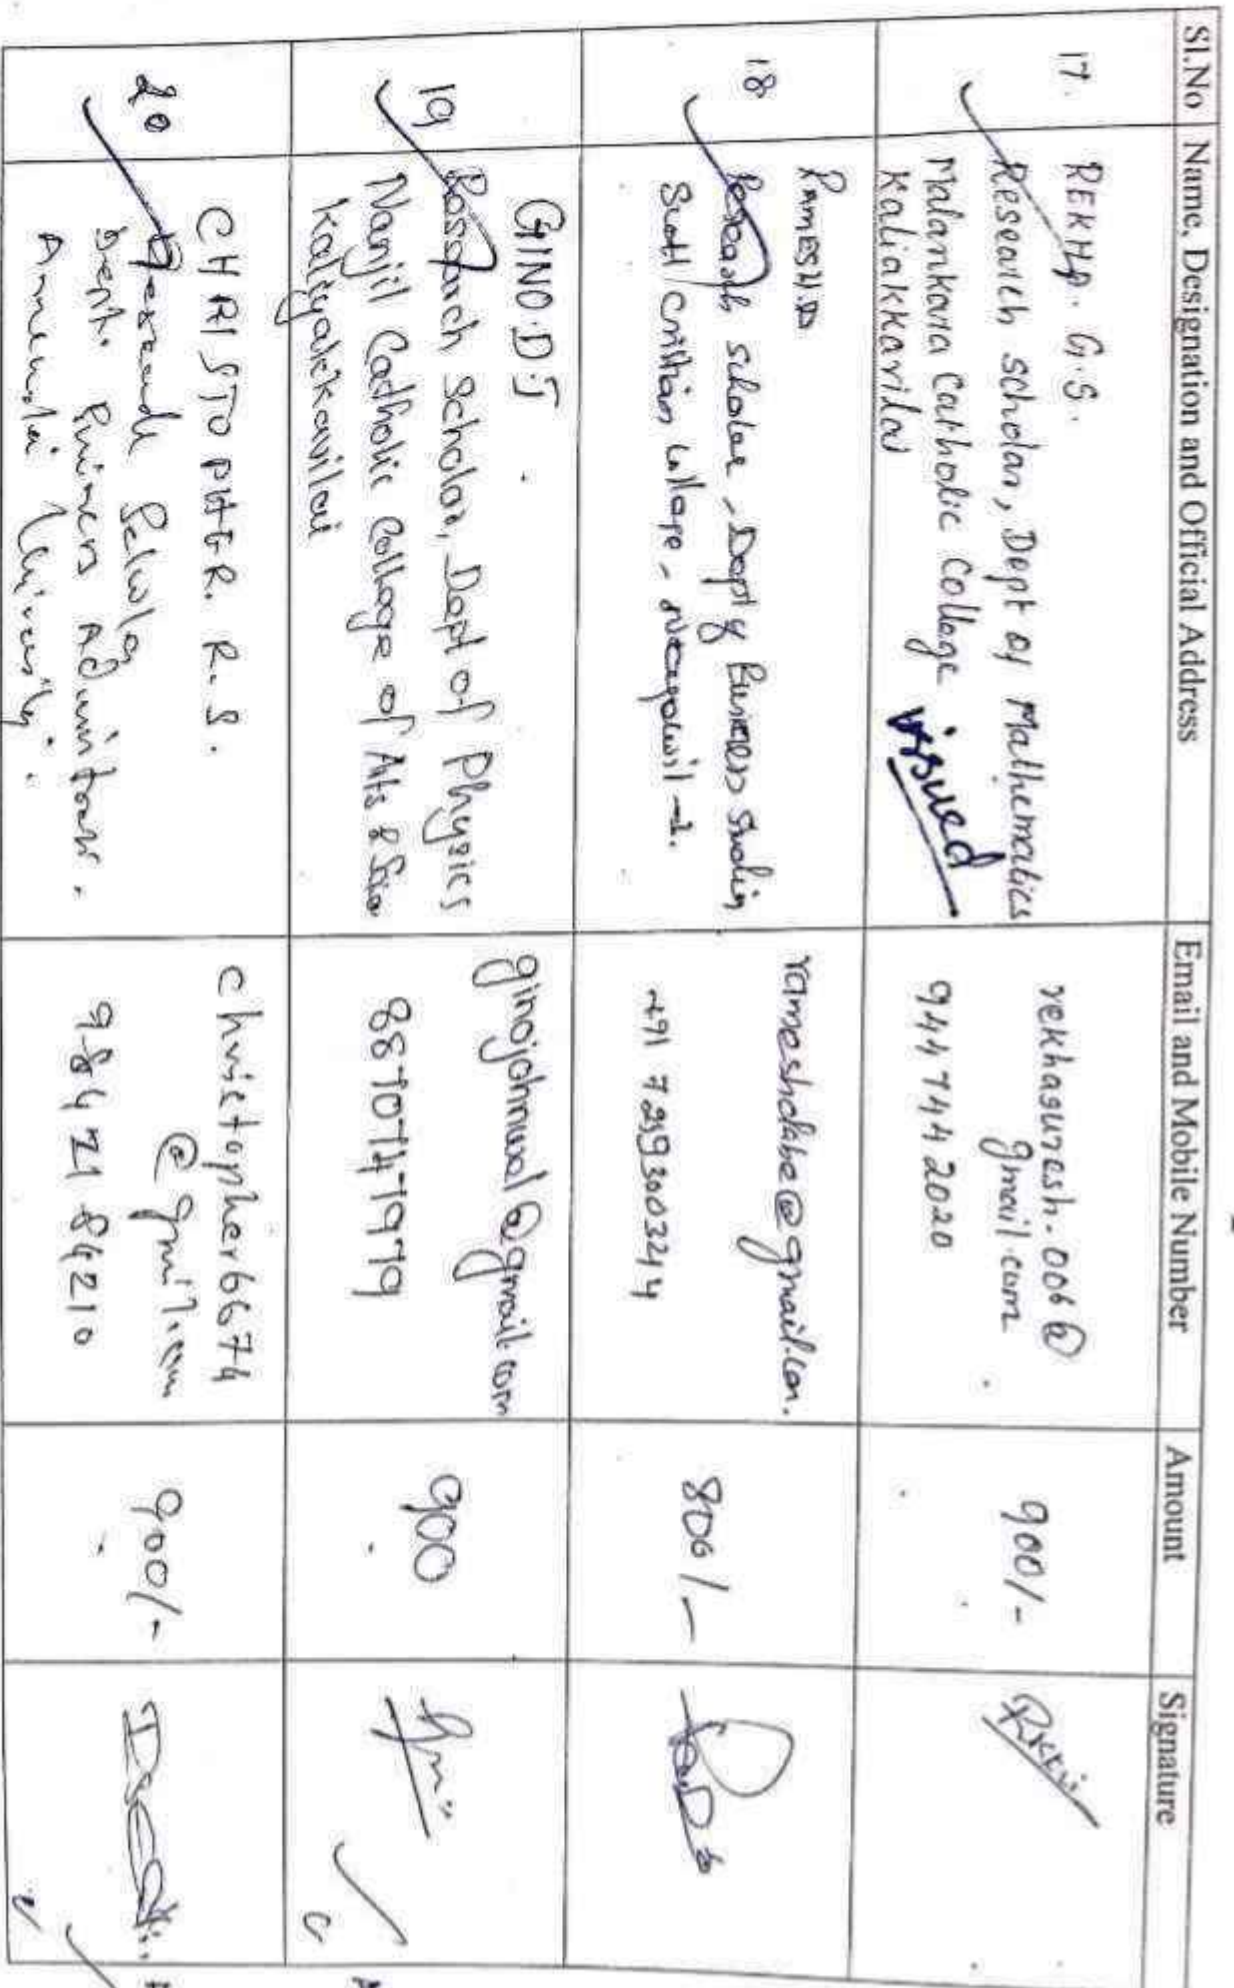 Sl.No Name, Designation and Official Address Email and Mobile Number Amount Signature
17. REKHA. G.S.
Research scholar, Dept of Mathematics
Malankara Catholic College
Kaliakkavilai
issued
rekhasuresh.006@
gmail.com
9447442020
900/-
18 RAMESH.D
Research scholar, Dept of Business Studies
Scott Christian College
rameshdabe@gmail.com.
+91 7299300324 4
800/-
19 GINO.D.J
Research Scholar, Dept of Physics
Nanjil Catholic College of Arts &
Kaliyakkavilai
@gmail.com
8870747979
900
20 CHRISTOPHER. R.S.
Research
Dept.
Annamalai University.
christopher6674
@gmail.com
9842184210
900/-